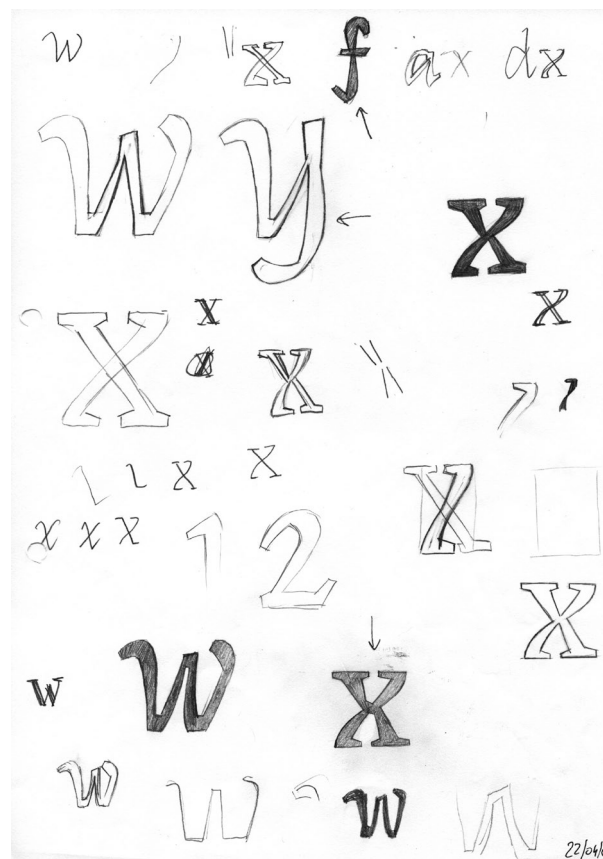 w x f a x d x
w y
x
x x x
a x x
, ,
ı ı x x
x x x 1 2 x
x
w w x
w w w w
22/04/